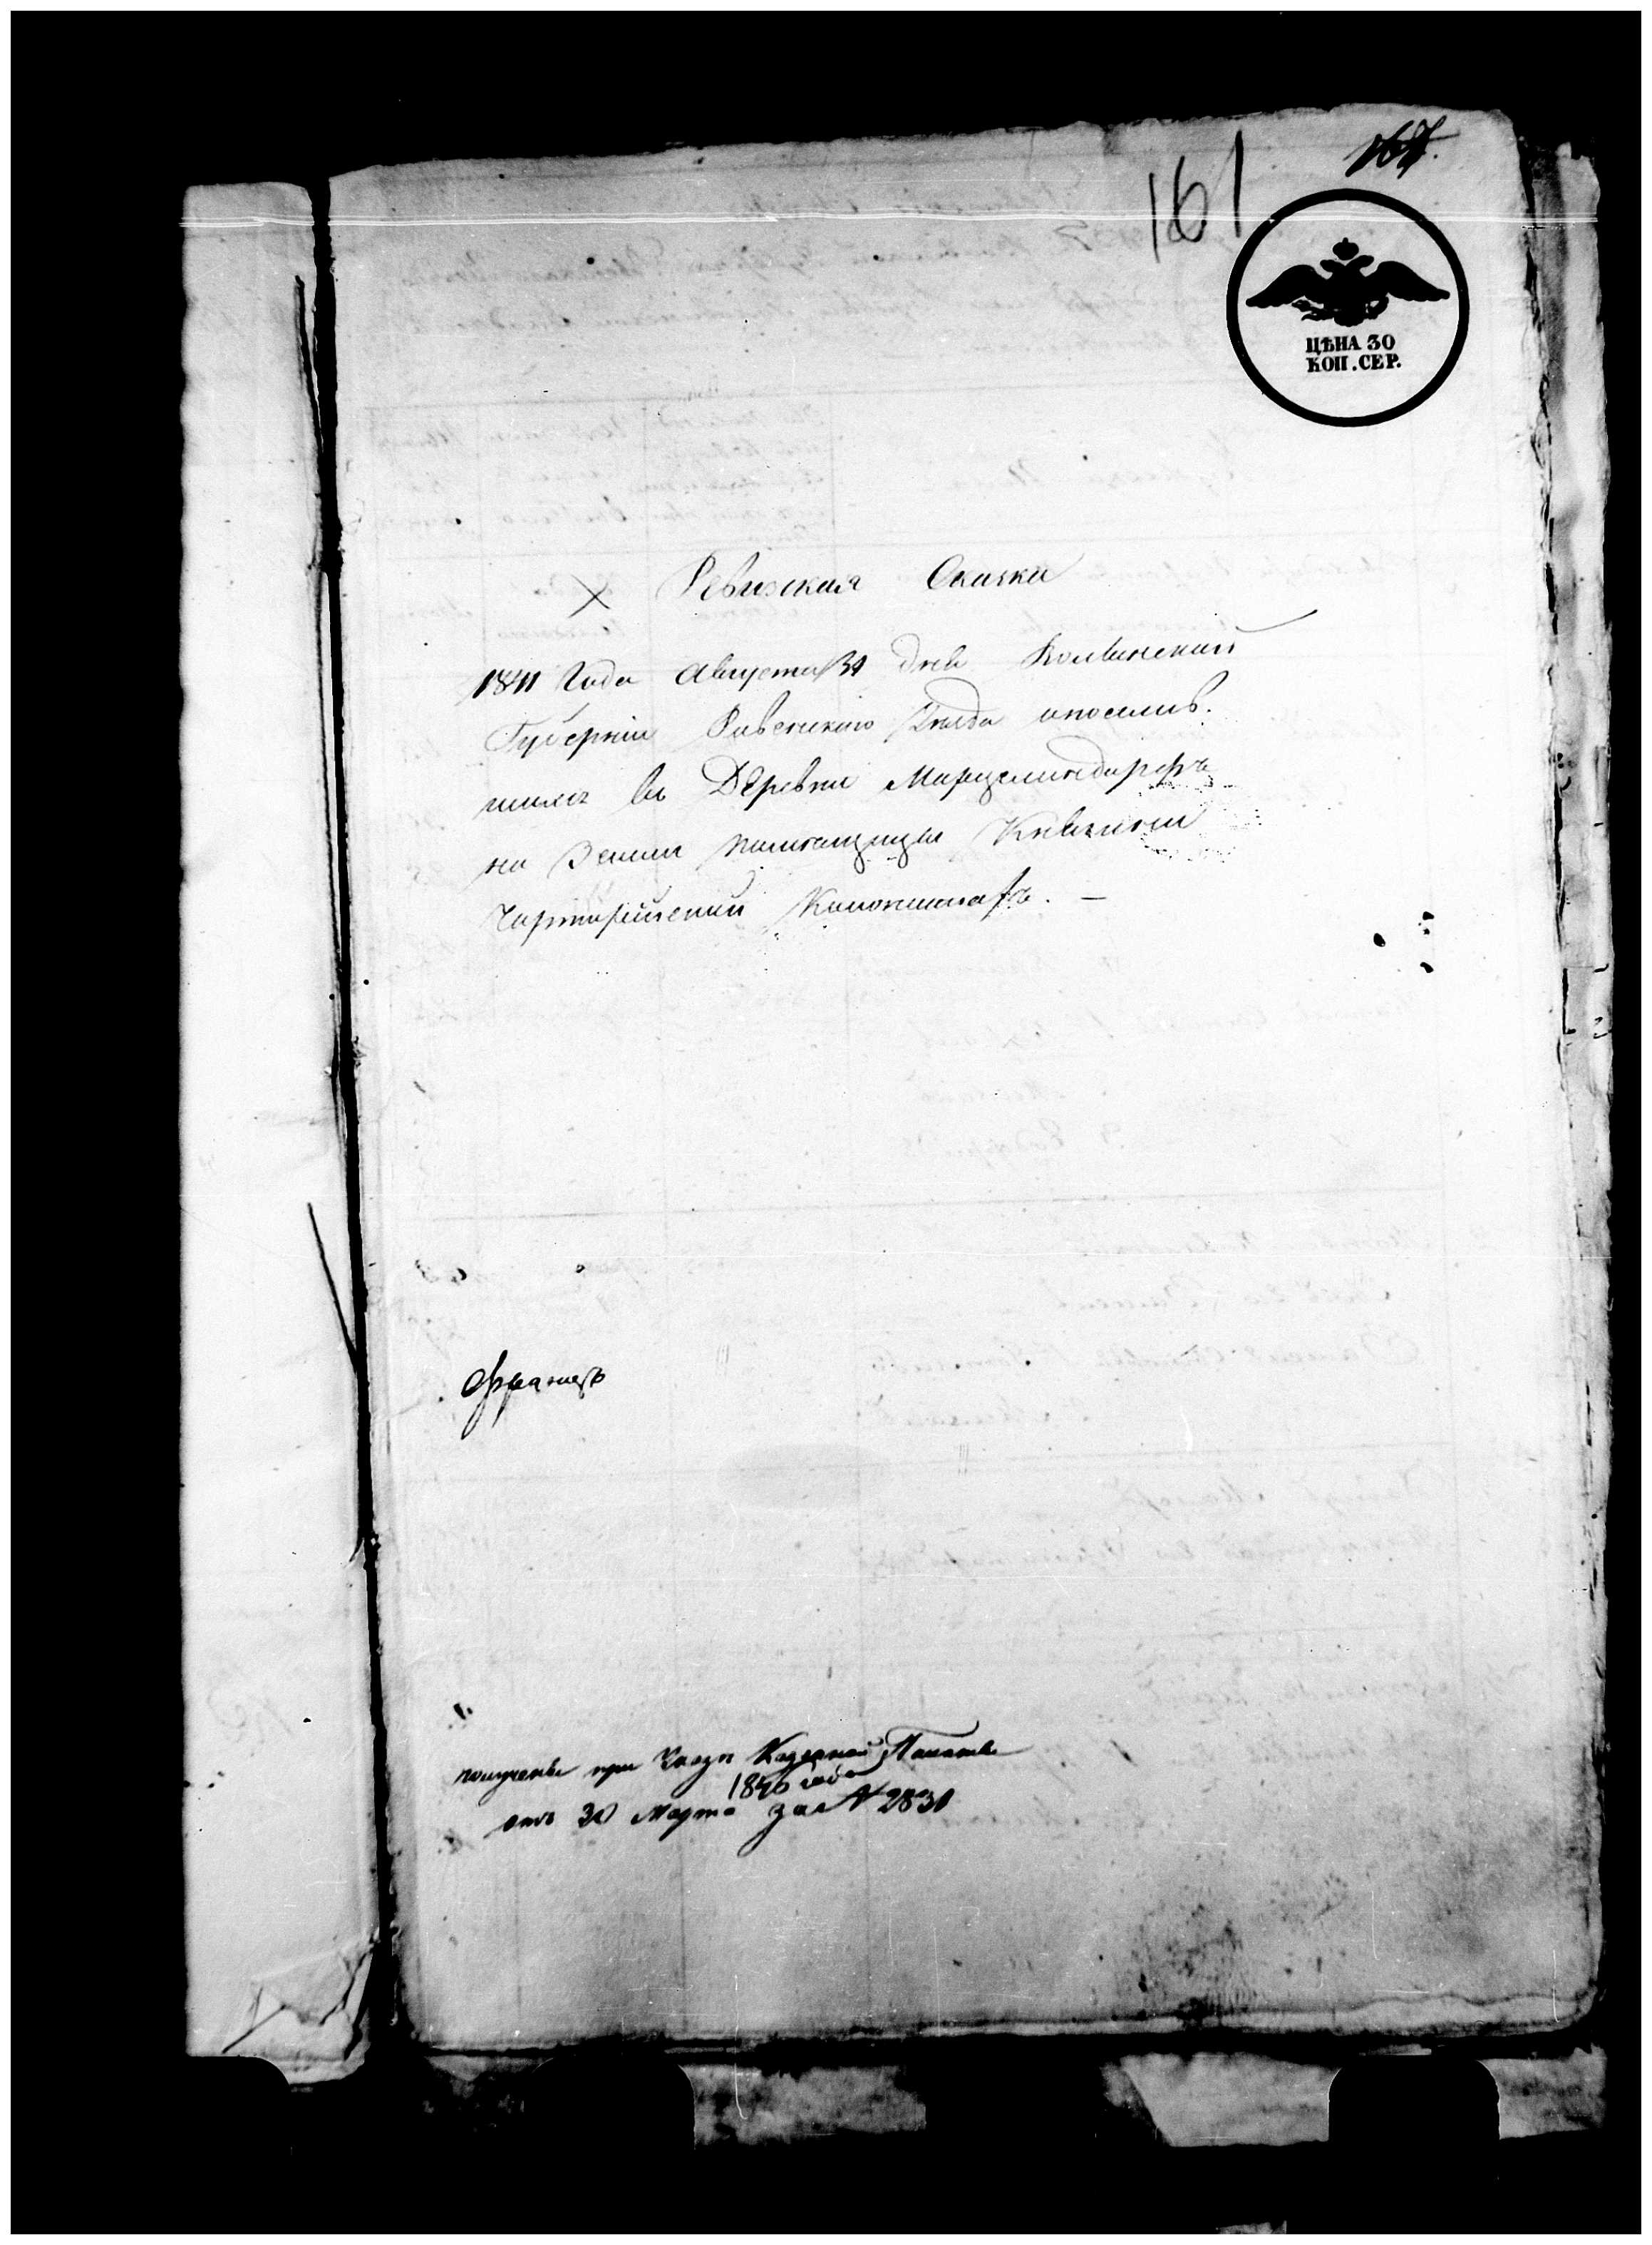 161
ЦѢНА 30
КОП. СЕР.
Ревизская Сказка
1841 Года Августа 31 дня Волынской
Губерніи Ровенского Уезда о поселив.
шихся въ Деревни Марцелиндорфъ
на Земли помещицы Княгини
Чарторийской Колонистахъ. —
Францъ
получены при Указе Казенной Палаты
1846 года
отъ 30 Марта за № 2831